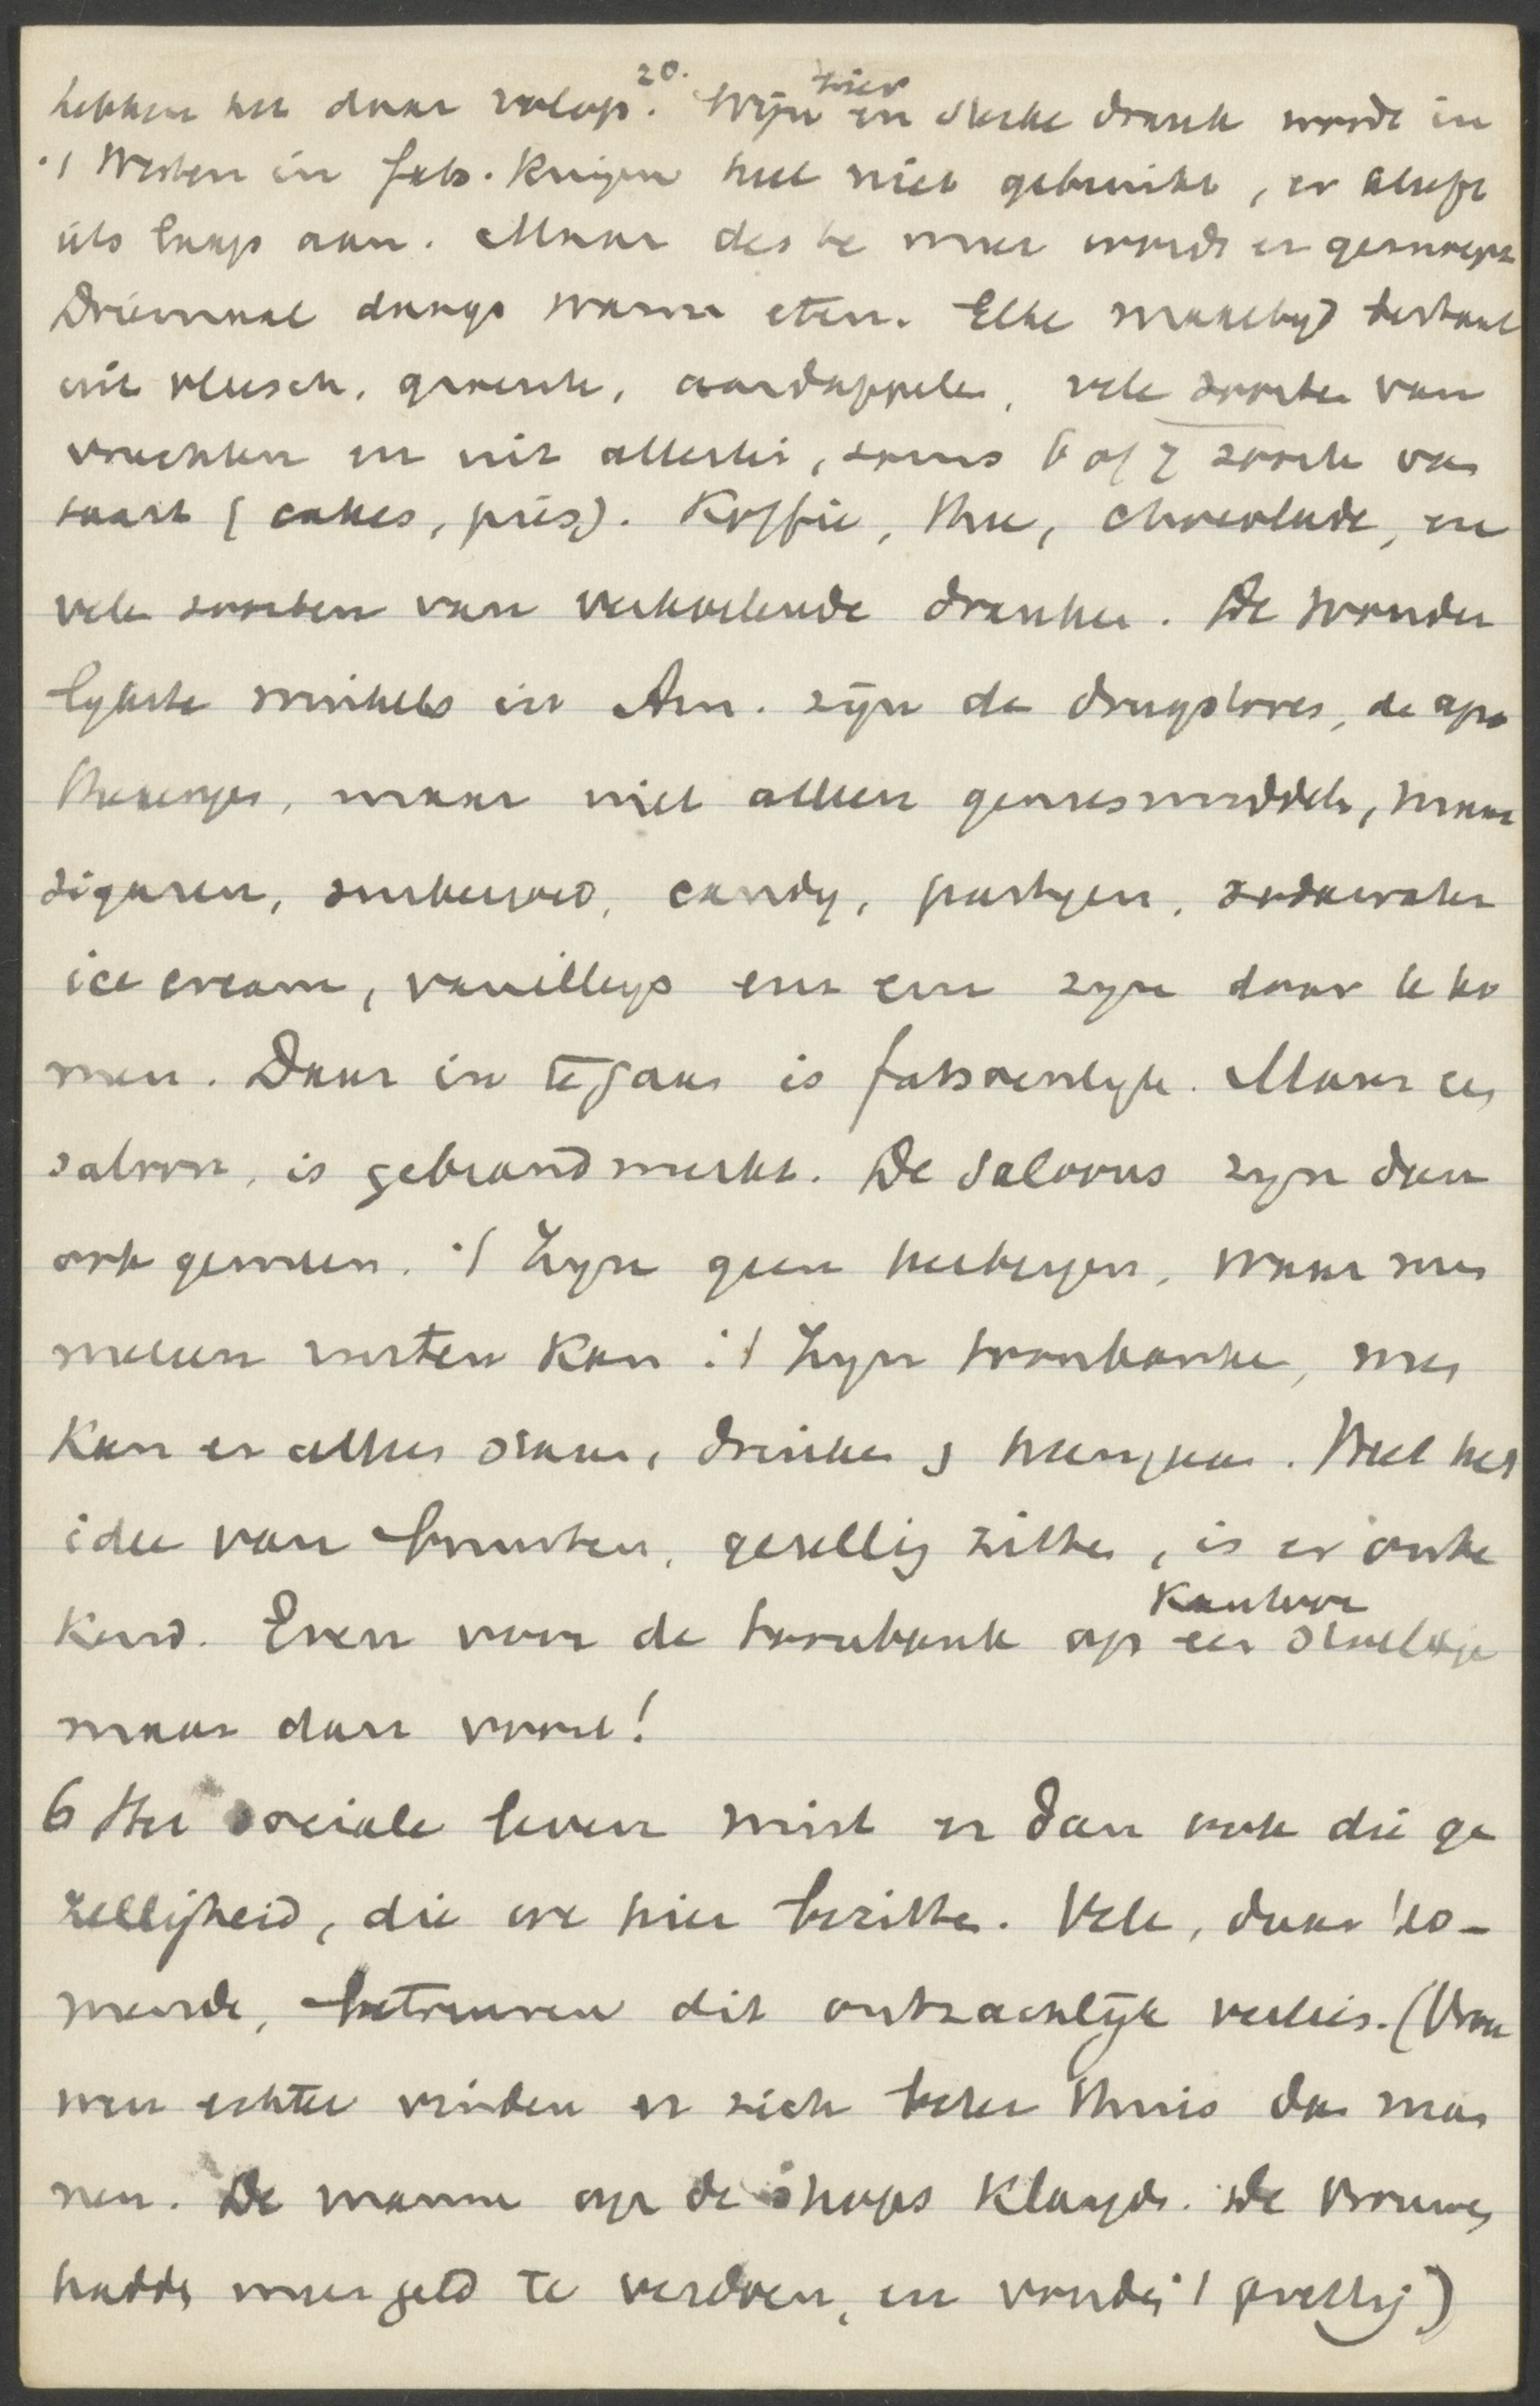 20.
hebben het daar volop. Wijn bier en sterke drank wordt in
't Westen in fats. kringen heel niet gebruikt, er kleeft
iets laags aan. Maar des te meer wordt er gesnoept
Driemaal daags warm eten. Elke maaltyd bestaat
uit vleesch, groente, aardappelen, vele soorten van
vruchten en uit allerlei, soms 6 of 7 soorten van
taart (cakes, pies). Koffie, thee, chocolade, en
vele soorten van verkoelende dranken. De wonder
lykste winkels in Am. zijn de drugstores, de apo
thekenjes, maar niet alleen geneesmiddelen, maar
sigaren, suikergoed, candy, pasteyen, sodawater
ice cream, vanilleys enz enz zyn daar te ko
men. Daar in te gaan is fatsoenlyk. Maar een
saloon, is gebrandmerkt. De Saloons zyn dan
ook gemeen. 't Zyn geen herbergen, waar men
rusten kan. 't Zyn toonbanken, men
kan er alleen staan, drinken & heengaan. Heel het
idee van buurten, gezellig zitten, is er onbe
kend. Even voor de toonbank op een kantoor stoeltje
maar dan voort!
6 Het sociale leven mist er dan ook die ge
zelligheid, die we hier bezitten. Vele, daar ko-
mende, betreuren dit ontzachlijk verlies. (Vrou
wen echter vinden er zich beter thuis dan man
nen. De mannen op de shops klaagden. De vrouwen
hadden meer geld te verdoen, en vonden 't prettig)